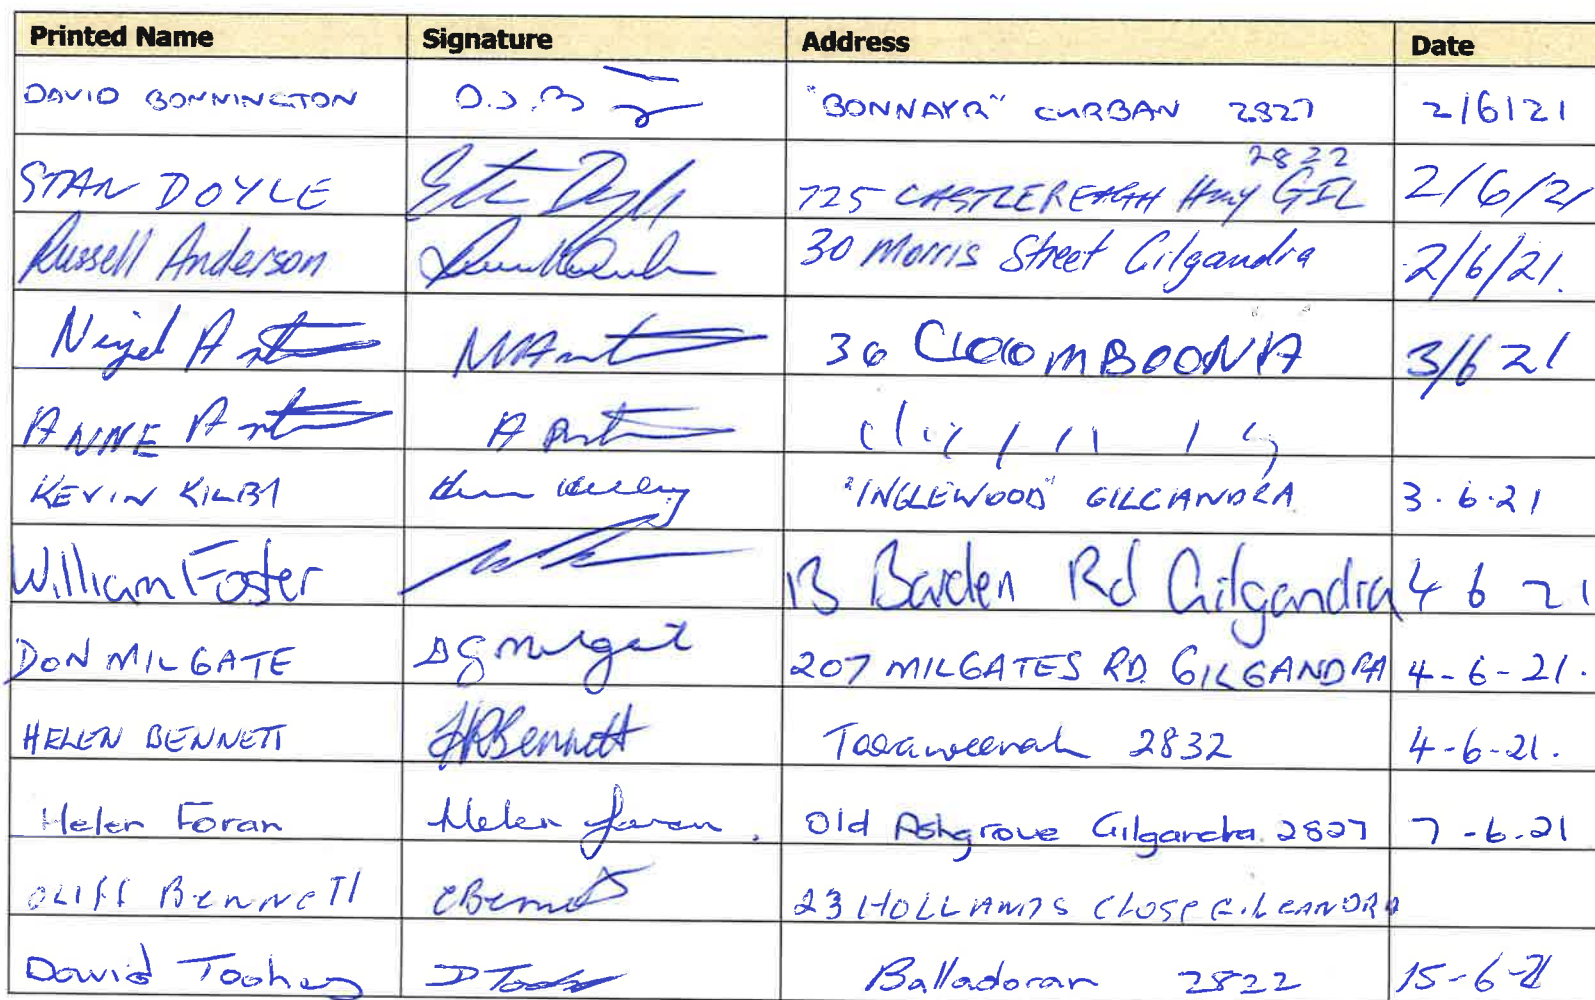 Printed Name Signature Address Date
DAVID BONNINGTON D.J.B "BONNAYR" CURBAN 2827 2/6/21
2822
STAN DOYLE Stan Doyle 725 CASTLEREAGH Hwy GIL 2/6/21
Russell Anderson 30 Morris Street Gilgandra 2/6/21.
Nigel 36 COOMBOONA 3/6 21
ANNE A
KEVIN KILBY "INGLEWOOD" GILGANDRA 3.6.21
William Foster 13 Barden Rd Gilgandra 4 6 21
DON MILGATE DG Milgate 207 MILGATES RD. GILGANDRA 4-6-21.
HELEN BENNETT HRBennett Tooraweenah 2832 4-6-21.
Helen Foran Helen Foran. Old Ashgrove Gilgandra 2827 7-6-21
CLIFF BENNETT CBennett 23 HOLLANDS CLOSE GILGANDRA
David Toohey D Toohey Balladoran 2822 15-6-21